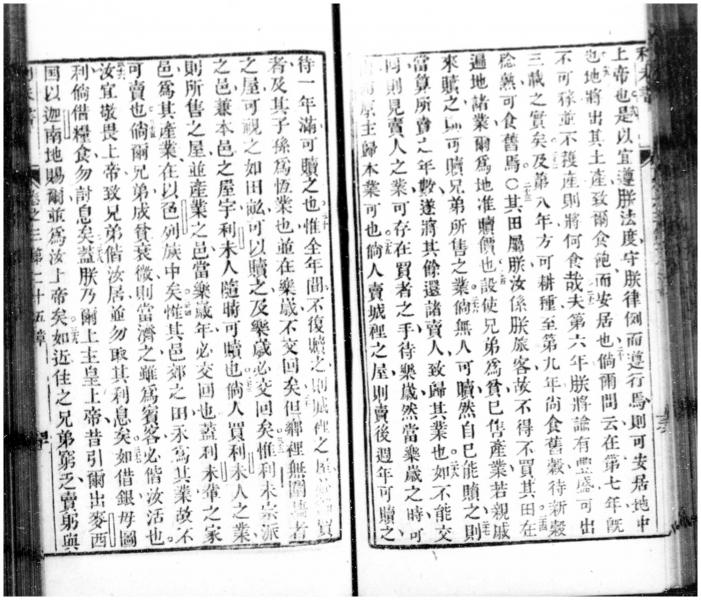 利未書
上帝也是以宜遵朕法度守朕律例而遵行焉則可安居地中
也地將出其土產致爾食飽而安居也倘爾問云在第七年旣
不可稼並不穫產則將何食哉夫第六年朕將諭有豐盛可出
三歲之實矣及第八年方可耕種至第九年尚食舊穀待新穀
稔熟可食舊焉○其田屬朕汝係朕旅客故不得不買其田在
遍地諸業爾爲地准贖價也設使兄弟爲貧已售產業若親戚
來贖之則可贖兄弟所售之業倘無人可贖然自己能贖之則
當算所賣之年數遂將其餘還諸賣人致歸其業也如不能交
則見賣人之業可存在買者之手待樂歲然當樂歲之時可
原主歸本業可也倘人賣城裡之屋則賣後週年可贖之
待一年滿可贖之也惟全年間不復贖之則城裡之屋買
者及其子孫爲恆業也並在樂歲不交回矣但鄉裡無圍墻者
之屋可視之如田畝可以贖之及樂歲必交回矣惟利未宗派
之邑兼本邑之屋宇利未人隨時可贖也倘人買利未人之業
則所售之屋並產業之邑當樂歲年必交回也蓋利未輩之家
邑爲其產業在以色列族中矣惟其邑郊之田永爲其業故不
可賣也倘爾兄弟成貧衰微則當濟之雖爲賓客必偕汝活也
汝宜敬畏上帝致兄弟偕汝居並勿取其利息矣如借銀毋圖
利倘借糧食勿討息矣蓋朕乃爾上主皇上帝昔引爾出麥西
国以迦南地賜爾並爲汝上帝矣如近住之兄弟窮乏賣躬與
卷之三第二十五章